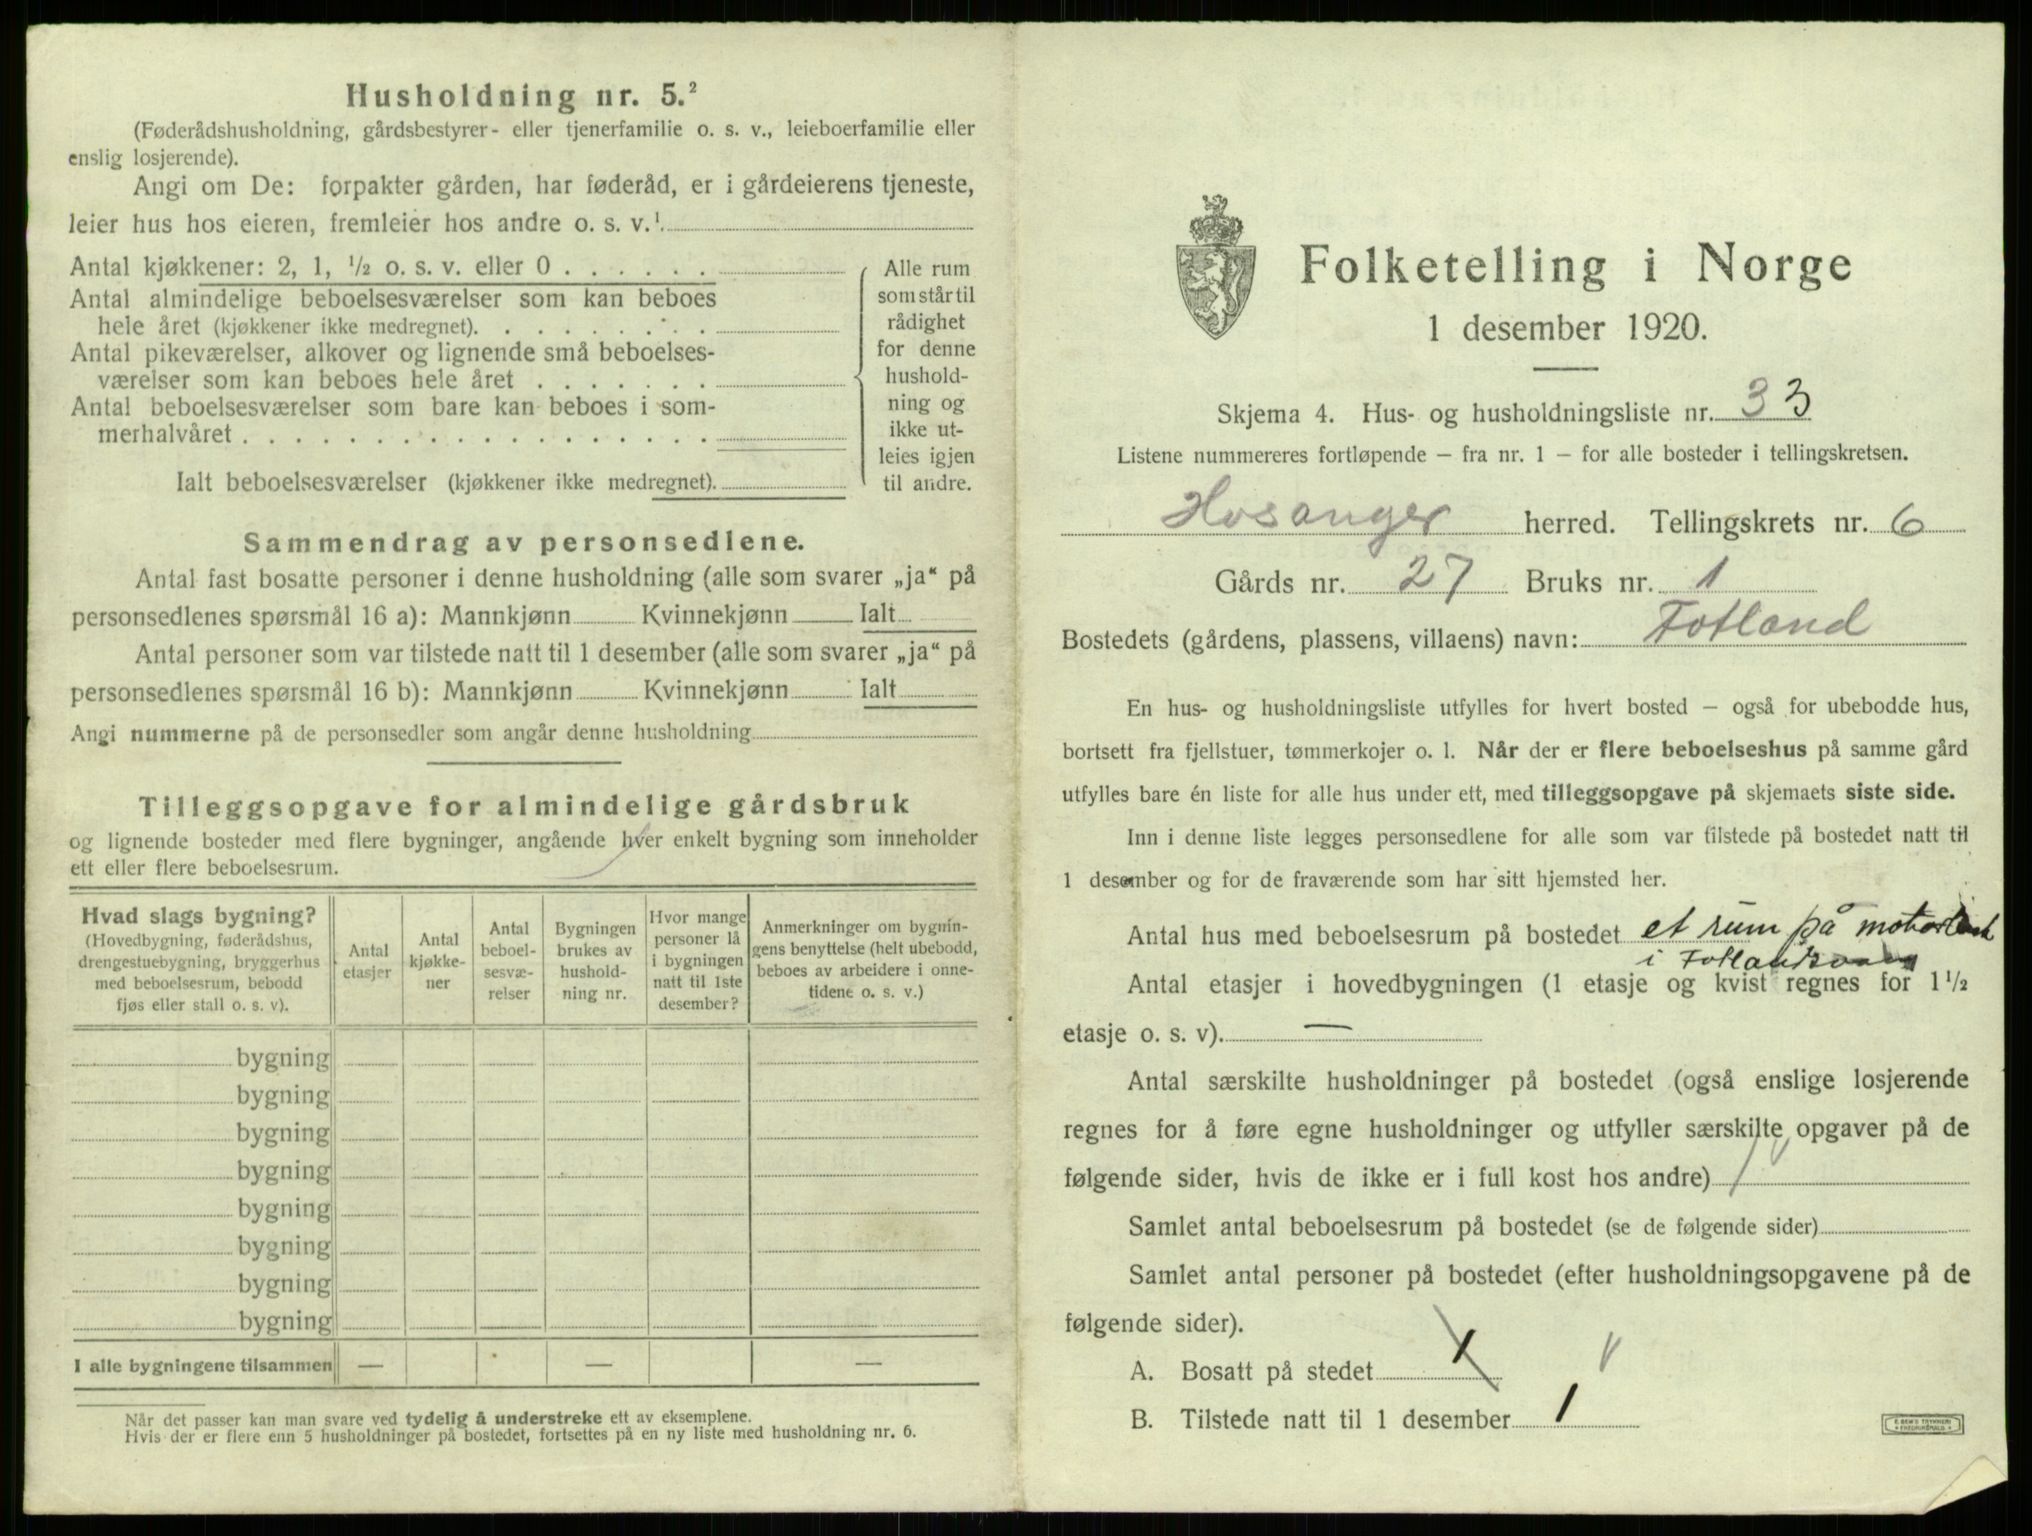 Husholdning nr. 5.²
(Føderådshusholdning, gårdsbestyrer- eller tjenerfamilie o. s. v., leieboerfamilie eller
enslig losjerende).
Angi om De: forpakter gården, har føderåd, er i gårdeierens tjeneste,
leier hus hos eieren, fremleier hos andre o. s. v.¹
Antal kjøkkener: 2, 1, ½ o. s. v. eller 0 . . . . . .
Antal almindelige beboelsesværelser som kan beboes
hele året (kjøkkener ikke medregnet). . . . . . . . .
Antal pikeværelser, alkover og lignende små beboelses-
værelser som kan beboes hele året . . . . . . .
Antal beboelsesværelser som bare kan beboes i som-
merhalvåret . . . . . . . . . . . . . . . . . .
Ialt beboelsesværelser (kjøkkener ikke medregnet).
Alle rum
som står til
rådighet
for denne
hushold-
ning og
ikke ut-
leies igjen
til andre.
Sammendrag av personsedlene.
Antal fast bosatte personer i denne husholdning (alle som svarer „ja“ på
personsedlenes spørsmål 16 a): Mannkjønn Kvinnekjønn Ialt
Antal personer som var tilstede natt til 1 desember (alle som svarer „ja“ på
personsedlenes spørsmål 16 b): Mannkjønn Kvinnekjønn Ialt
Angi nummerne på de personsedler som angår denne husholdning
Tilleggsopgave for almindelige gårdsbruk
og lignende bosteder med flere bygninger, angående hver enkelt bygning som inneholder
ett eller flere beboelsesrum.
Hvad slags bygning?
(Hovedbygning, føderådshus,
drengestuebygning, bryggerhus
med beboelsesrum, bebodd
fjøs eller stall o. s. v).
Antal
etasjer
Antal
kjøkke-
ner
Antal
beboel-
sesvæ-
relser
Bygningen
brukes av
hushold-
ning nr.
Hvor mange
personer lå
i bygningen
natt til 1ste
desember?
Anmerkninger om bygnin-
gens benyttelse (helt ubebodd,
beboes av arbeidere i onne-
tidene o. s. v.)
bygning
bygning
bygning
bygning
bygning
bygning
bygning
bygning
I alle bygningene tilsammen — — —
Når det passer kan man svare ved tydelig å understreke ett av eksemplene.
Hvis der er flere enn 5 husholdninger på bostedet, fortsettes på en ny liste med husholdning nr. 6.
Folketelling i Norge
1 desember 1920.
Skjema 4. Hus- og husholdningsliste nr. 33
Listene nummereres fortløpende — fra nr. 1 — for alle bosteder i tellingskretsen.
Hosanger herred. Tellingskrets nr. 6
Gårds nr. 27 Bruks nr. 1
Bostedets (gårdens, plassens, villaens) navn: Fotland
En hus- og husholdningsliste utfylles for hvert bosted — også for ubebodde hus,
bortsett fra fjellstuer, tømmerkojer o. l. Når der er flere beboelseshus på samme gård
utfylles bare én liste for alle hus under ett, med tilleggsopgave på skjemaets siste side.
Inn i denne liste legges personsedlene for alle som var tilstede på bostedet natt til
1 desember og for de fraværende som har sitt hjemsted her.
Antal hus med beboelsesrum på bostedet et rum på
i
Antal etasjer i hovedbygningen (1 etasje og kvist regnes for 1½
etasje o. s. v). —
Antal særskilte husholdninger på bostedet (også enslige losjerende
regnes for å føre egne husholdninger og utfyller særskilte opgaver på de
følgende sider, hvis de ikke er i full kost hos andre) 1
Samlet antal beboelsesrum på bostedet (se de følgende sider)
Samlet antal personer på bostedet (efter husholdningsopgavene på de
følgende sider).
A. Bosatt på stedet 1
B. Tilstede natt til 1 desember 1